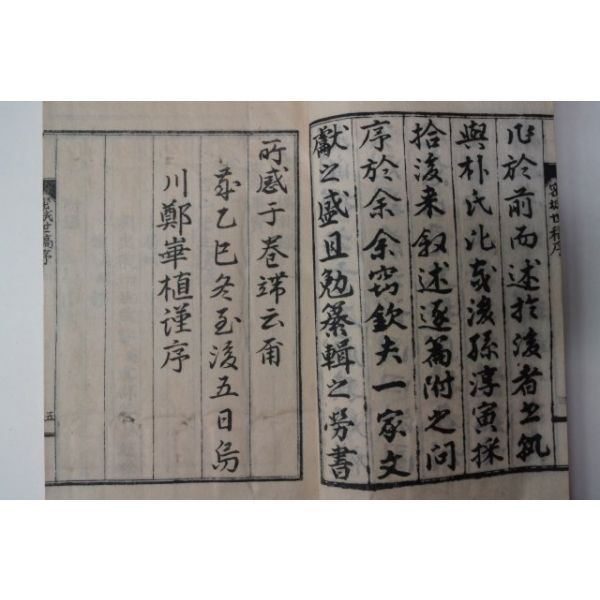 密城世稿序
於前而述於後者孰
與朴氏比哉後孫淳寅採
拾後來叙述逐篇附之問
序於余余窃欽夫一家文
獻之盛且勉纂輯之勞書
所感于卷端云爾
歲乙巳冬至後五日烏
川鄭崋植謹序
密城世稿序
五